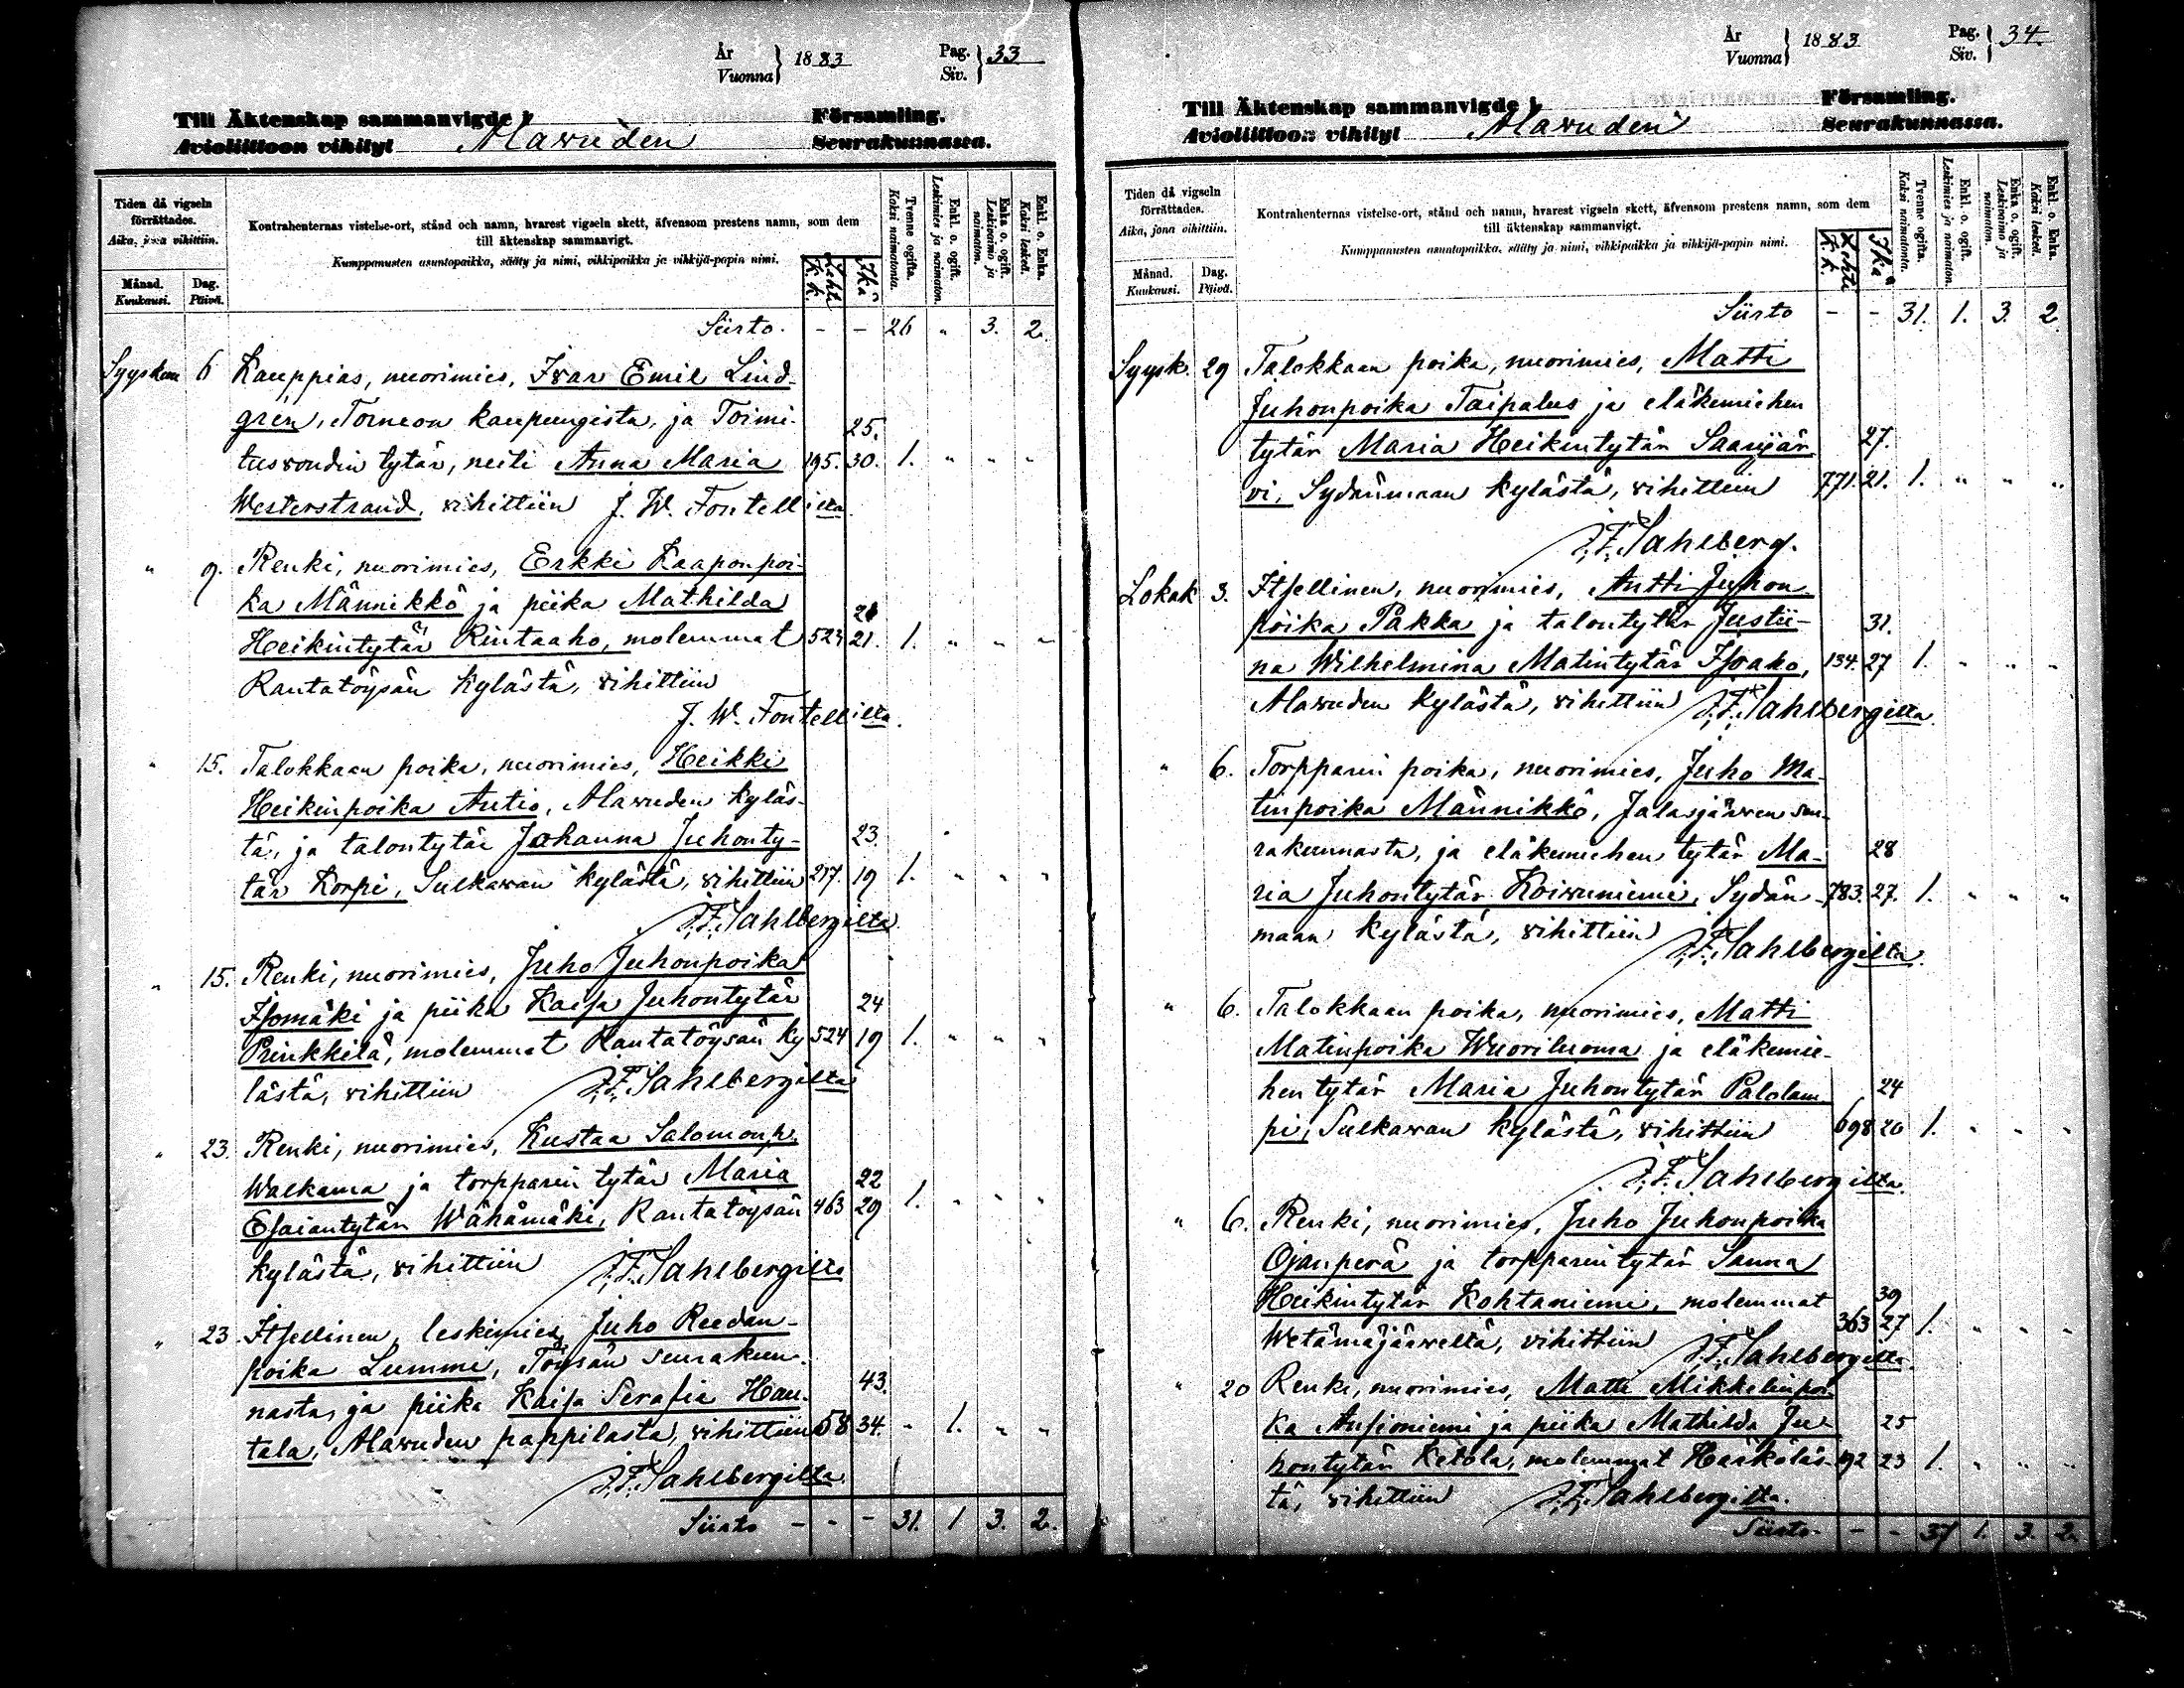 År
Vuonna } 1883
Pag.
Siv. } 33
Till Äktenskap sammanvigde i
Avioliittoon vihityt
Alavuden
Församling.
Seurakunnassa.
Tiden då vigseln
förrättades.
Aika, jona vihittiin.
Månad.
Kuukausi.
Dag.
Päivä.
Kontrahenternas vistelse-ort, stånd och namn, hvarest vigseln skett, äfvensom prestens namn, som dem
till äktenskap sammanvigt.
Kumppanusten asuntopaikka, sääty ja nimi, vihkipaikka ja vihkijä-papin nimi.
Lehti K.k.
Ikä
Tvenne ogifta.
Kaksi naimatonta.
Enkl. o. ogift.
Leskimies ja naimaton.
Enka o. ogift.
Leskivaimo ja naimaton.
Enkl. o. Enka.
Kaksi leskeä.
Siirto. - - 26 " 3. 2.
Syyskuu 6 Kauppias, nuorimies, Ivar Emil Lind-
gren, Tornion kaupungista, ja Toimi- 25.
tusvoudin tytär, neiti Anna Maria 195. 30. 1. " " "
Westerstrand, vihittiin J. W. Fontellilta
" 9. Renki, nuorimies, Erkki Kaaponpoi-
ka Männikkö ja piika Mathilda 21
Heikintytär Rintaaho, molemmat 523 21. 1. " " "
Rantatöysän kylästä, vihittiin
J. W. Fontellilta.
" 15. Talokkaan poika, nuorimies, Heikki
Heikinpoika Autio, Alavuden kyläs-
tä, ja talontytär Johanna Juhonty- 23.
tär Korpi, Sulkavan kylästä, vihittiin 277. 19 1. " " "
J. F. Sahlbergilta.
" 15. Renki, nuorimies, Juho Juhonpoika
Isomäki ja piika Kaisa Juhontytär 24
Prinkkilä, molemmat Rantatöysän ky 524 19 1. " " "
lästä, vihittiin J. F. Sahlbergilta
" 23. Renki, nuorimies, Kustaa Salomonp.
Walkama ja torpparin tytär Maria 22
Esaiantytär Wähämäki, Rantatöysän 463 29 1. " " "
kylästä, vihittiin J. F. Sahlbergilta
" 23. Itsellinen, leskimies, Juho Reedan-
poika Lumme, Töysän seurakun-
nasta, ja piika Kaisa Serafia Hau- 43.
tala, Alavuden pappilasta, vihittiin 58 34. - 1. " "
J. F. Sahlbergilta
Siirto - - - 31. 1 3. 2.
År
Vuonna } 1883
Pag.
Siv. } 34.
Till Äktenskap sammanvigde i
Avioliittoon vihityt
Alavuden
Församling.
Seurakunnassa.
Tiden då vigseln
förrättades.
Aika, jona vihittiin.
Månad.
Kuukausi.
Dag.
Päivä.
Kontrahenternas vistelse-ort, stånd och namn, hvarest vigseln skett, äfvensom prestens namn, som dem
till äktenskap sammanvigt.
Kumppanusten asuntopaikka, sääty ja nimi, vihkipaikka ja vihkijä-papin nimi.
Lehti K.k.
Ikä
Tvenne ogifta.
Kaksi naimatonta.
Enkl. o. ogift.
Leskimies ja naimaton.
Enka o. ogift.
Leskivaimo ja naimaton.
Enkl. o. Enka.
Kaksi leskeä.
Siirto - - 31. 1. 3. 2
Syysk. 29 Talokkaan poika, nuorimies, Matti
Juhonpoika Taipalus ja eläkemiehen
tytär Maria Heikintytär Saarijär 27.
vi, Sydänmaan kylästä, vihittiin 771. 21. 1. " " "
J. F. Sahlberg.
Lokak 3. Itsellinen, nuorimies, Antti Juhon
poika Pakka ja talontytär Justii- 31.
na Wilhelmina Matintytär Isoaho, 134. 27 1. " " "
Alavuden kylästä, vihittiin J. F. Sahlbergilta.
" 6. Torpparin poika, nuorimies, Juho Ma-
tinpoika Männikkö, Jalasjärven seu-
rakunnasta, ja eläkemiehen tytär Ma- 28
ria Juhontytär Koivuniemi, Sydän- 783. 27. 1. " " "
maan kylästä, vihittiin J. F. Sahlbergilta.
" 6. Talokkaan poika, nuorimies, Matti
Matinpoika Wuoriluoma ja eläkemie-
hen tytär Maria Juhontytär Palolam 24
pi, Sulkavan kylästä, vihittiin 698 20 1. " " "
J. F. Sahlbergilta.
" 6. Renki, nuorimies, Juho Juhonpoika
Ojanperä ja torpparin tytär Sanna
Heikintytär Kohtaniemi, molemmat 39
Wetämäjärveltä, vihittiin 363 27 1. " " "
J. F. Sahlbergilta.
" 20 Renki, nuorimies, Matti Mikkelinpoi
ka Ansioniemi ja piika Mathilda Ju- 25
hontytär Ketola, molemmat Härköläs- 192 23 1. " " "
tä, vihittiin J. F. Sahlbergilta.
Siirto - - - 37 1. 3. 2.